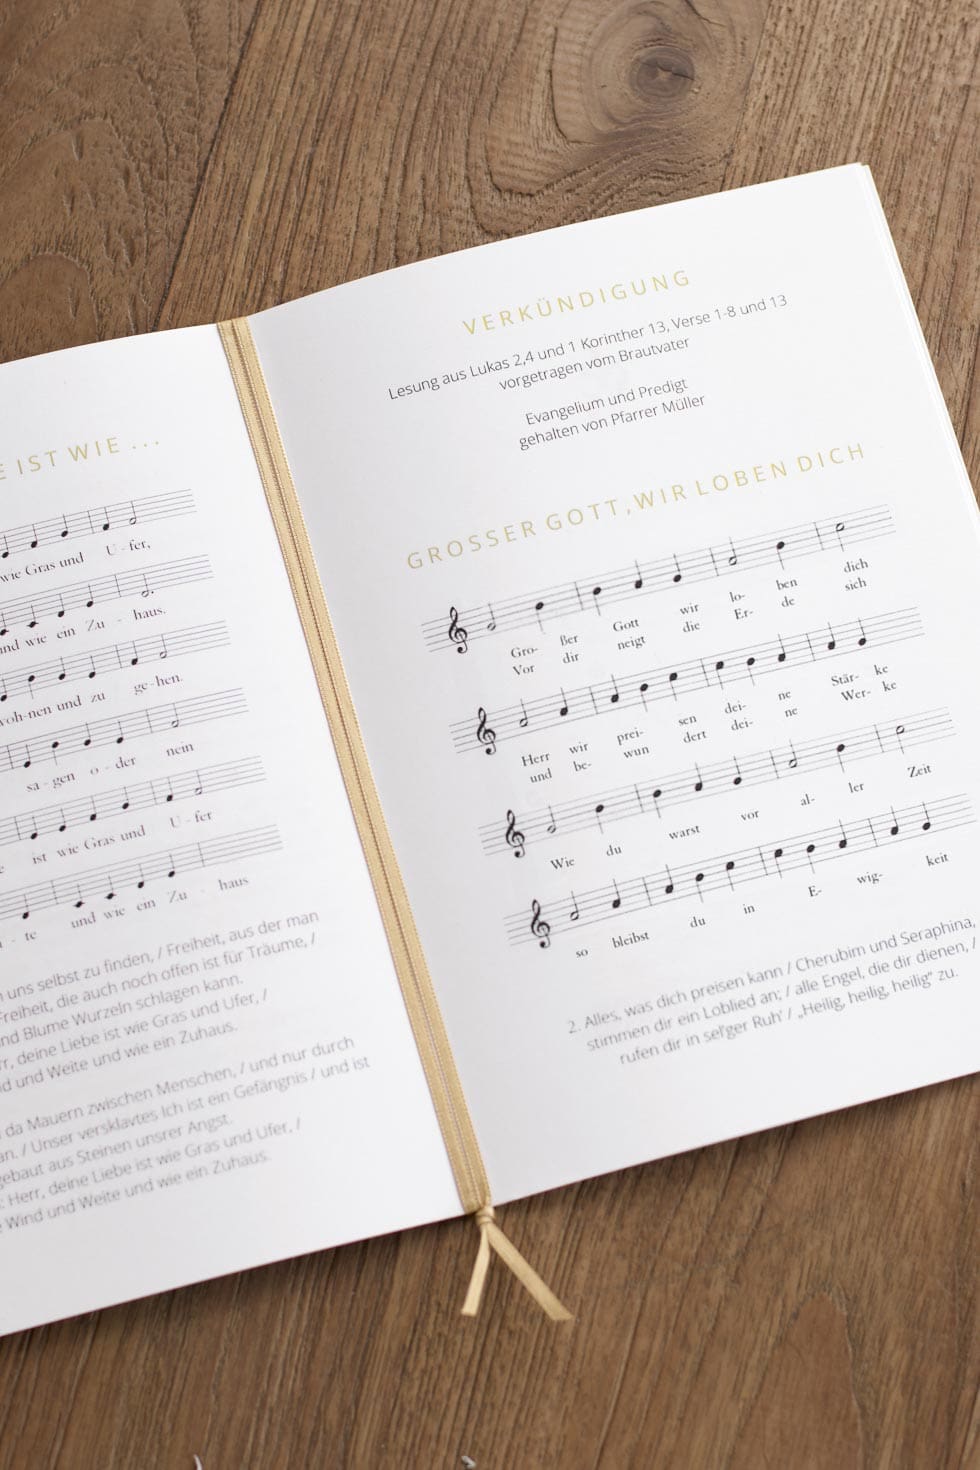 IST WIE ...
wie Gras und U - fer,
und wie ein Zu - haus.
woh-nen und zu ge-hen.
sa - gen o - der nein
ist wie Gras und U - fer
te und wie ein Zu - haus
uns selbst zu finden, / Freiheit, aus der man
Freiheit, die auch noch offen ist für Träume, /
und Blume Wurzeln schlagen kann.
deine Liebe ist wie Gras und Ufer, /
und Weite und wie ein Zuhaus.
da Mauern zwischen Menschen, / und nur durch
/ Unser versklavtes Ich ist ein Gefängnis / und ist
gebaut aus Steinen unsrer Angst.
: Herr, deine Liebe ist wie Gras und Ufer, /
Wind und Weite und wie ein Zuhaus.
VERKÜNDIGUNG
Lesung aus Lukas 2,4 und 1 Korinther 13, Verse 1-8 und 13
vorgetragen vom Brautvater
Evangelium und Predigt
gehalten von Pfarrer Müller
GROSSER GOTT, WIR LOBEN DICH
Gro- ßer Gott wir lo- ben dich
Vor dir neigt die Er- de sich
Herr wir prei- sen dei- ne Stär- ke
und be- wun dert dei- ne Wer- ke
Wie du warst vor al- ler Zeit
so bleibst du in E- wig- keit
2. Alles, was dich preisen kann / Cherubim und Seraphina,
stimmen dir ein Loblied an; / alle Engel, die dir dienen, /
rufen dir in sel'ger Ruh' / „Heilig, heilig, heilig" zu.